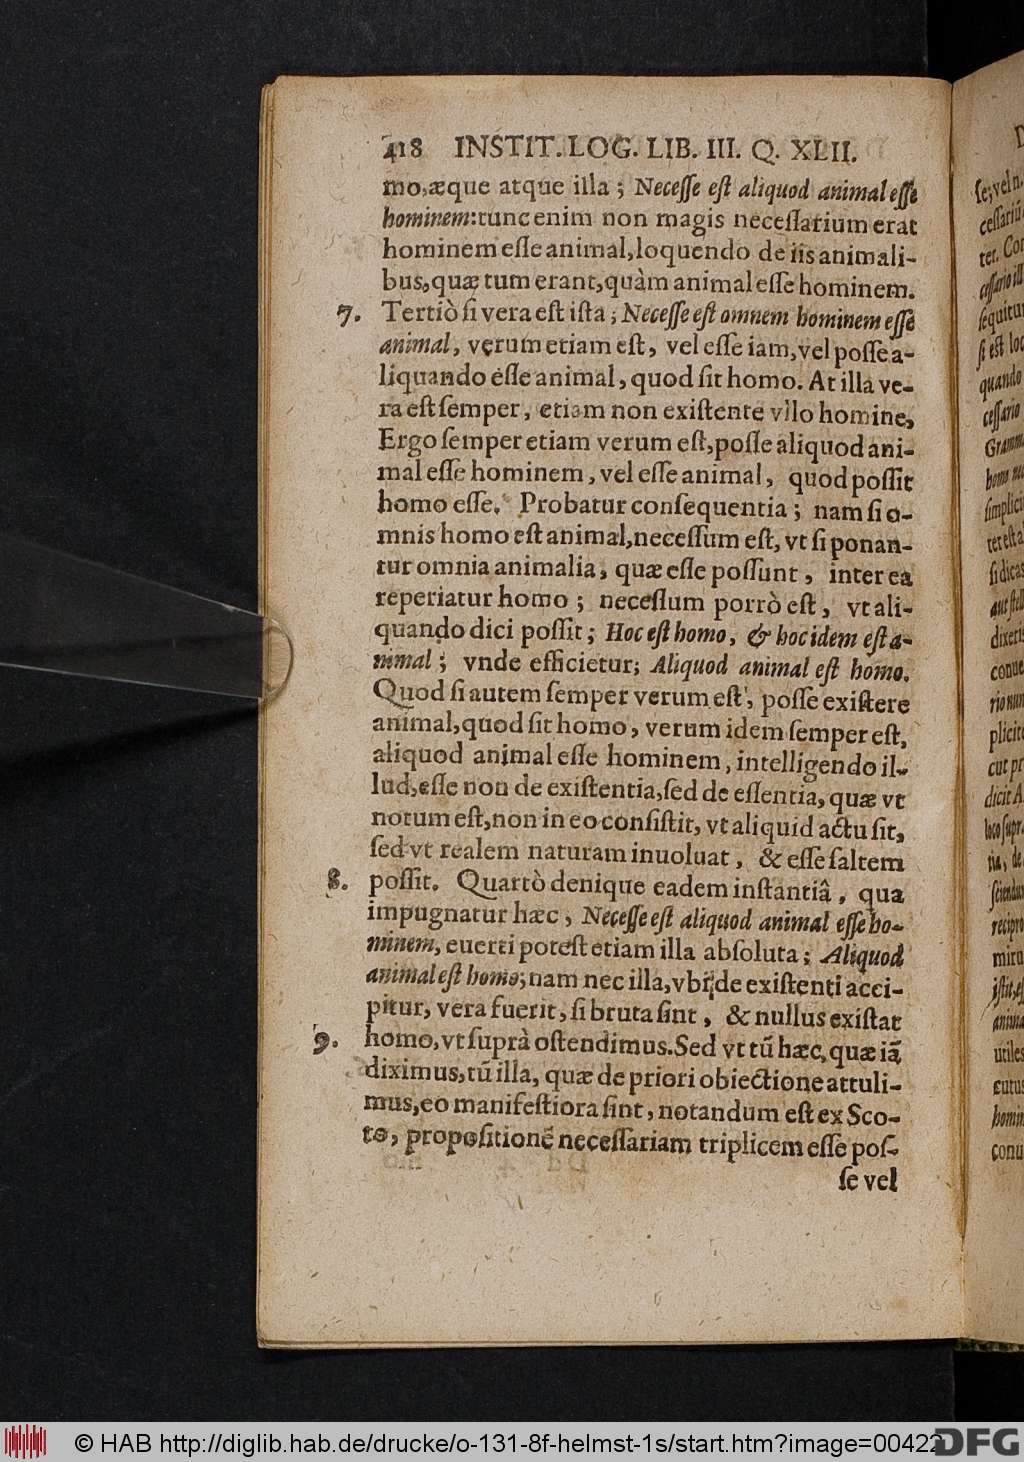 418 INSTIT. LOG. LIB. III. Q. XLII.
mo, æque atque illa; Neceſſe eſt aliquod animal eſſe
hominem: tunc enim non magis neceſſarium erat
hominem eſſe animal, loquendo de iis animali-
bus, quæ tum erant, quàm animal eſſe hominem.
7. Tertiò ſi vera eſt iſta; Neceſſe eſt omnem hominem eſſe
animal, verum etiam eſt, vel eſſe iam, vel poſſe a-
liquando eſſe animal, quod ſit homo. At illa ve-
ra eſt ſemper, etiam non exiſtente vllo homine,
Ergo ſemper etiam verum eſt, poſſe aliquod ani-
mal eſſe hominem, vel eſſe animal, quod poſſit
homo eſſe. Probatur conſequentia; nam ſi o-
mnis homo eſt animal, neceſſum eſt, vt ſi ponan-
tur omnia animalia, quæ eſſe poſſunt, inter ea
reperiatur homo; neceſſum porrò eſt, vt ali-
quando dici poſſit; Hoc eſt homo, & hoc idem eſt a-
nimal; vnde efficietur; Aliquod animal eſt homo.
Quod ſi autem ſemper verum eſt, poſſe exiſtere
animal, quod ſit homo, verum idem ſemper eſt,
aliquod animal eſſe hominem, intelligendo il-
lud, eſſe non de exiſtentia, ſed de eſſentia, quæ vt
notum eſt, non in eo conſiſtit, vt aliquid actu ſit,
ſed vt realem naturam inuoluat, & eſſe ſaltem
8. poſſit. Quartò denique eadem inſtantiâ, qua
impugnatur hæc, Neceſſe eſt aliquod animal eſſe ho-
minem, euerti poteſt etiam illa abſoluta; Aliquod
animal eſt homo; nam nec illa, vbi de exiſtenti acci-
pitur, vera fuerit, ſi bruta ſint, & nullus exiſtat
9. homo, vt ſuprà oſtendimus. Sed vt tũ hæc, quæ iã
diximus, tũ illa, quæ de priori obiectione attuli-
mus, eo manifeſtiora ſint, notandum eſt ex Sco-
to, propoſitionẽ neceſſariam triplicem eſſe poſ-
ſe vel
© HAB http://diglib.hab.de/drucke/o-131-8f-helmst-1s/start.htm?image=00422
DFG